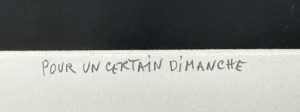 POUR UN CERTAIN DIMANCHE